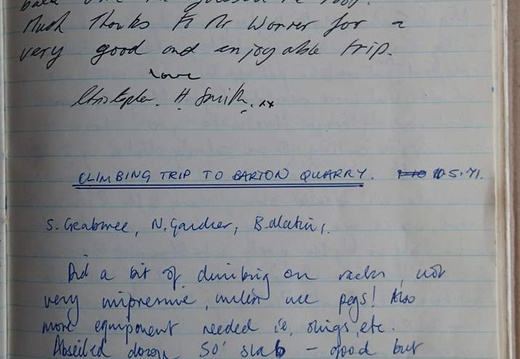 Much thanks to Mr Worner for a
very good and enjoyable trip.
love
Christopher. H. Smith. xx
CLIMBING TRIP TO BARTON QUARRY. 10.5.71.
S. Crabtree, N. Gardner, B.
Did a bit of climbing on rocks, not
very impressive, unless use pegs! Also
more equipment needed ie, slings, etc.
Abseiled down 50' slab – good but